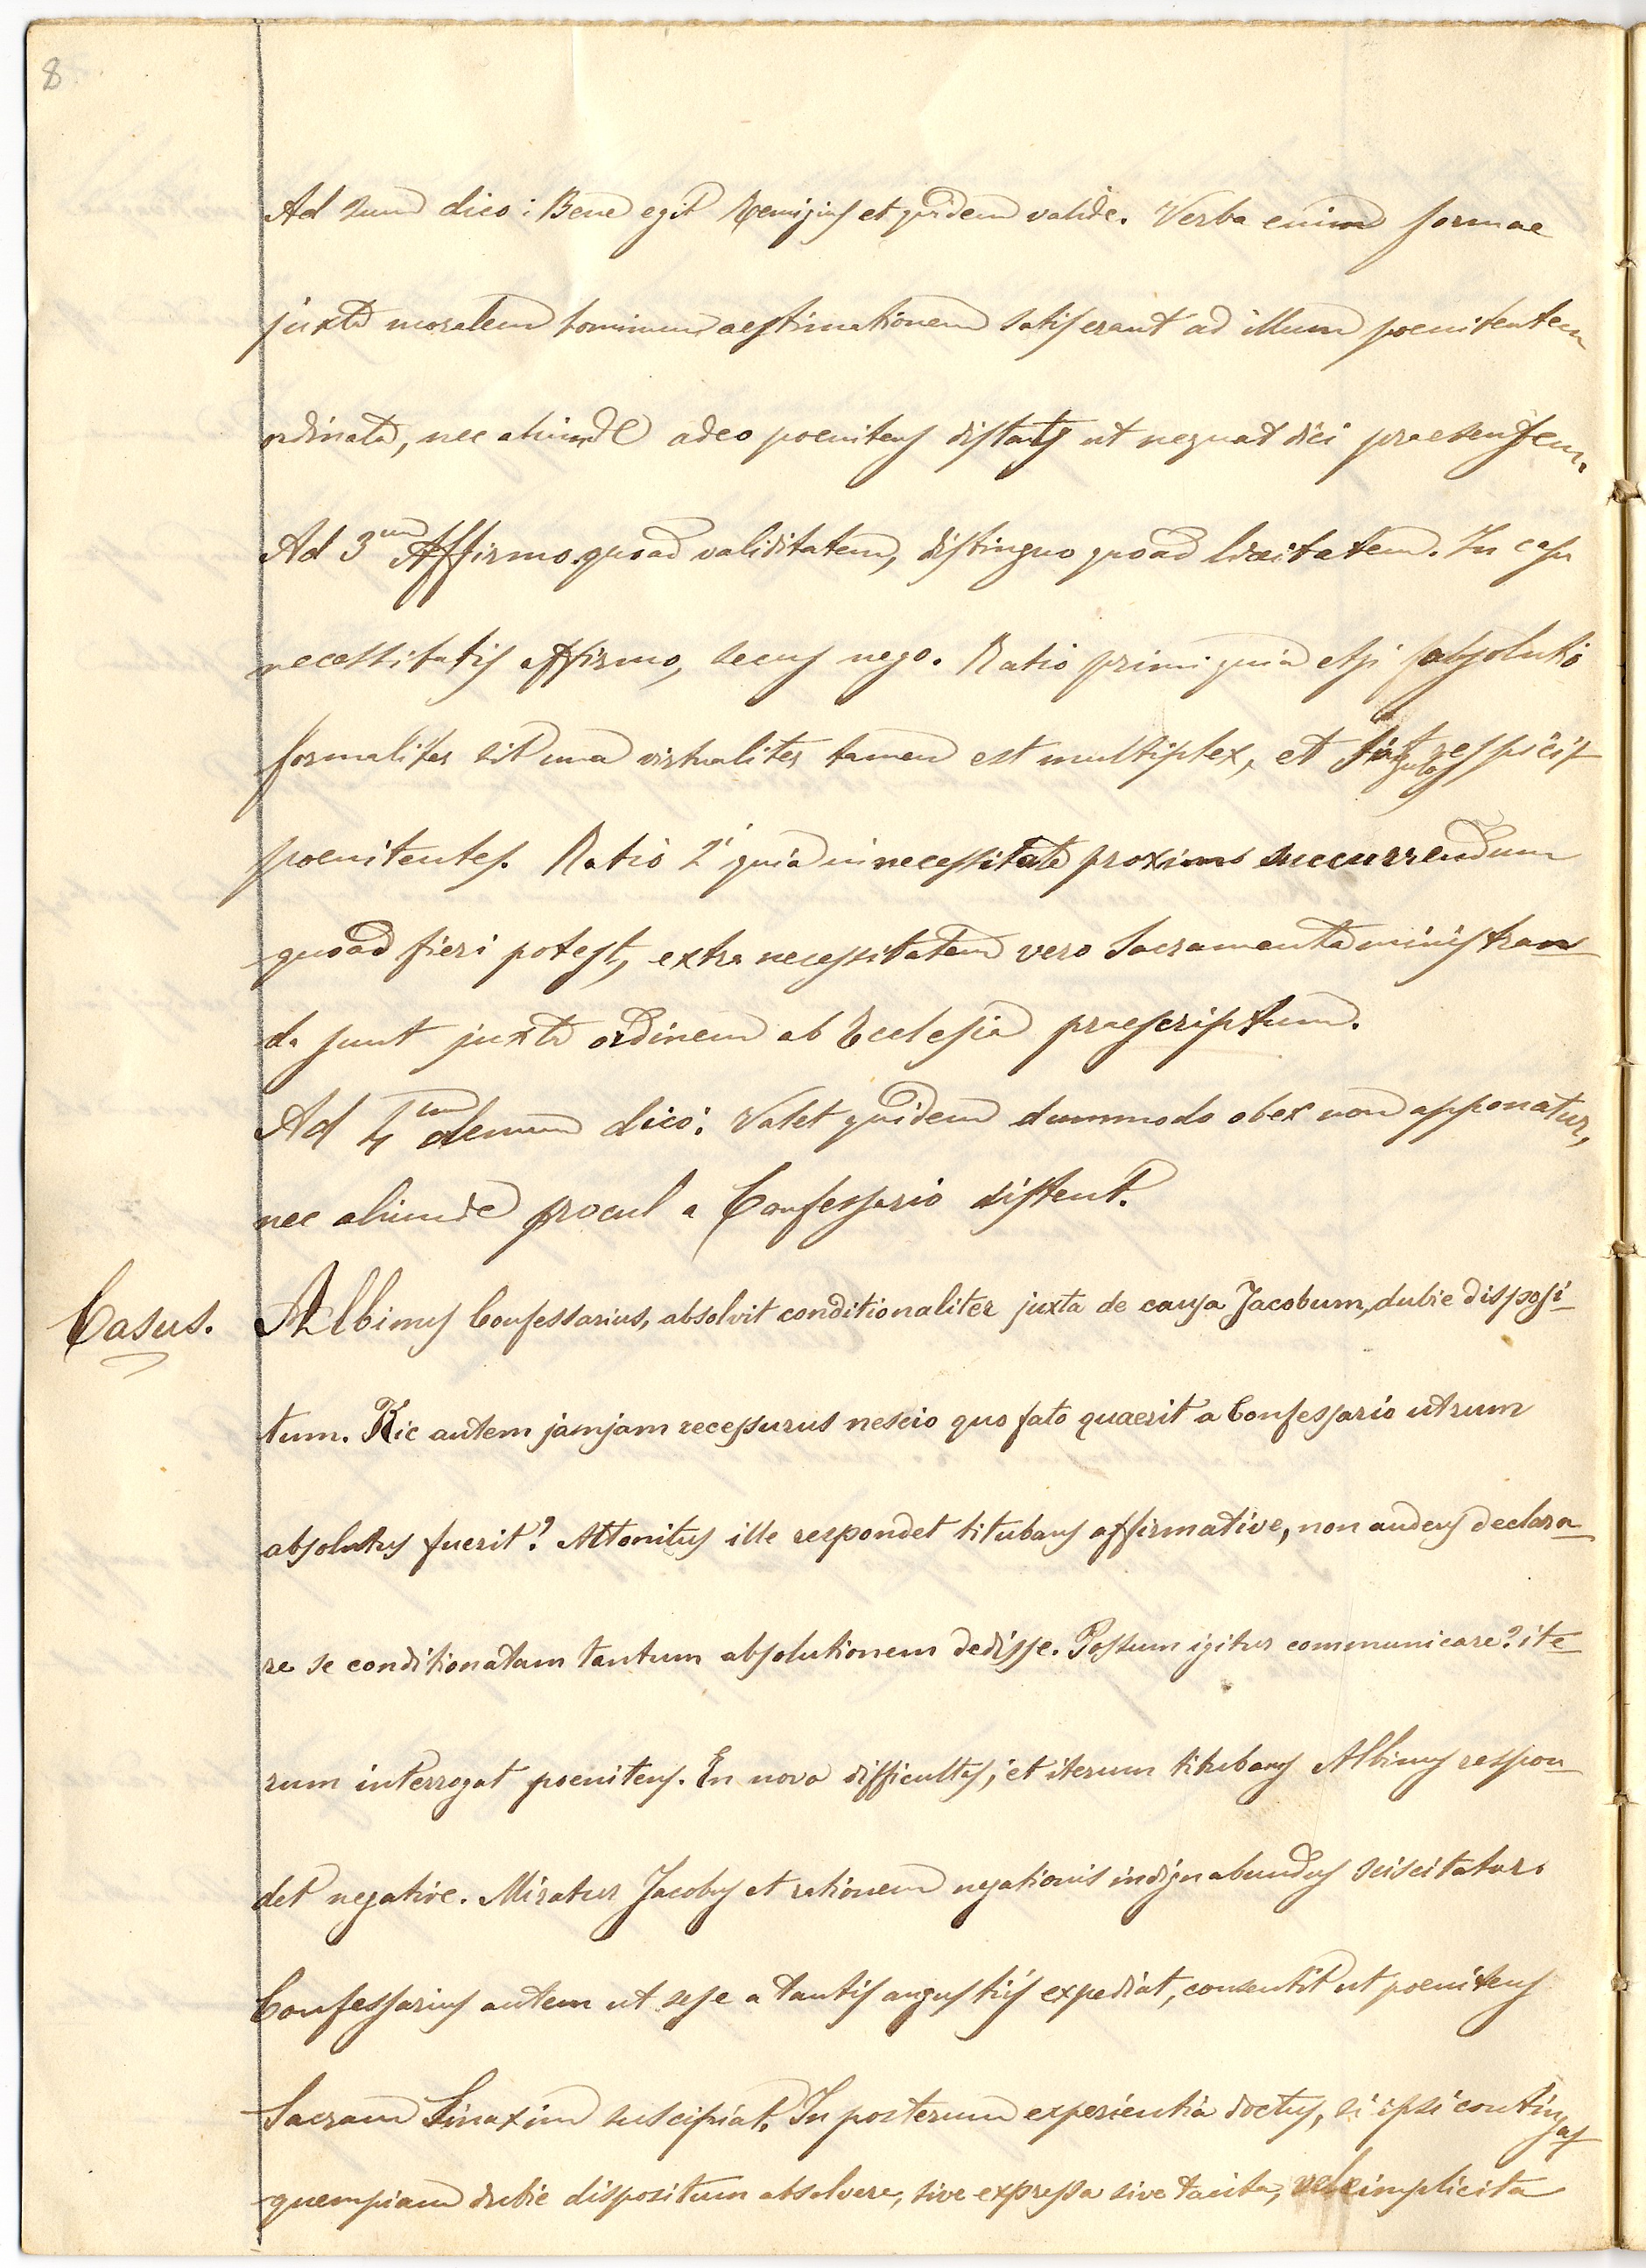 8
Ad 2um dico: Bene egit Remigius et quidem valide. Verba enim formae
juxta moralem hominum aestimationem satis erant ad illum poenitentem
ordinata, nec aliunde adeo poenitens distats ut nequat dici praesentem.
Ad 3um Affirmo quoad validitatem, distinguo quoad liceitatem. In casu
necessitatis affirmo, secus nego. Ratio primi quia etsi absolutio
formaliter sit una virtualiter tamen est multiplex, et singulos respicit
poenitentes. Ratio 2i quia in necessitate proximo succurrendum
quoad fieri potest, extra necessitatem vero Sacramenta ministran
da sunt juxta ordinem ab Ecclesia praescriptum.
Ad 4um demum dico: Valet quidem dummodo obex non apponatur,
nec aliunde procul a Confessario distent.
Casus. Albinus Confessarius, absolvit conditionaliter juxta de causa Jacobum, dubie disposi
tum. Hic autem jamjam recessurus nescio quo fato quaerit a Confessario utrum
absolutus fuerit? Attonitus ille respondet titubans affirmative, non audens declara
re se conditionatam tantum absolutionem dedisse. Possum igitur communicare? ite
rum interrogat poenitens. En nova difficultas, et iterum titubans Albinus respon
det negative. Miratur Jacobus et rationem negationis indignabundus sciscitatur.
Confessarius autem ut sese a tantis angustiis expediat, consentit ut poenitens
Sacram Sinaxim suscipiat. In posterum experientia doctus, si ipsi contingat
quempiam dubie dispositum absolvere, sive expressa sive tacita, vel implicita